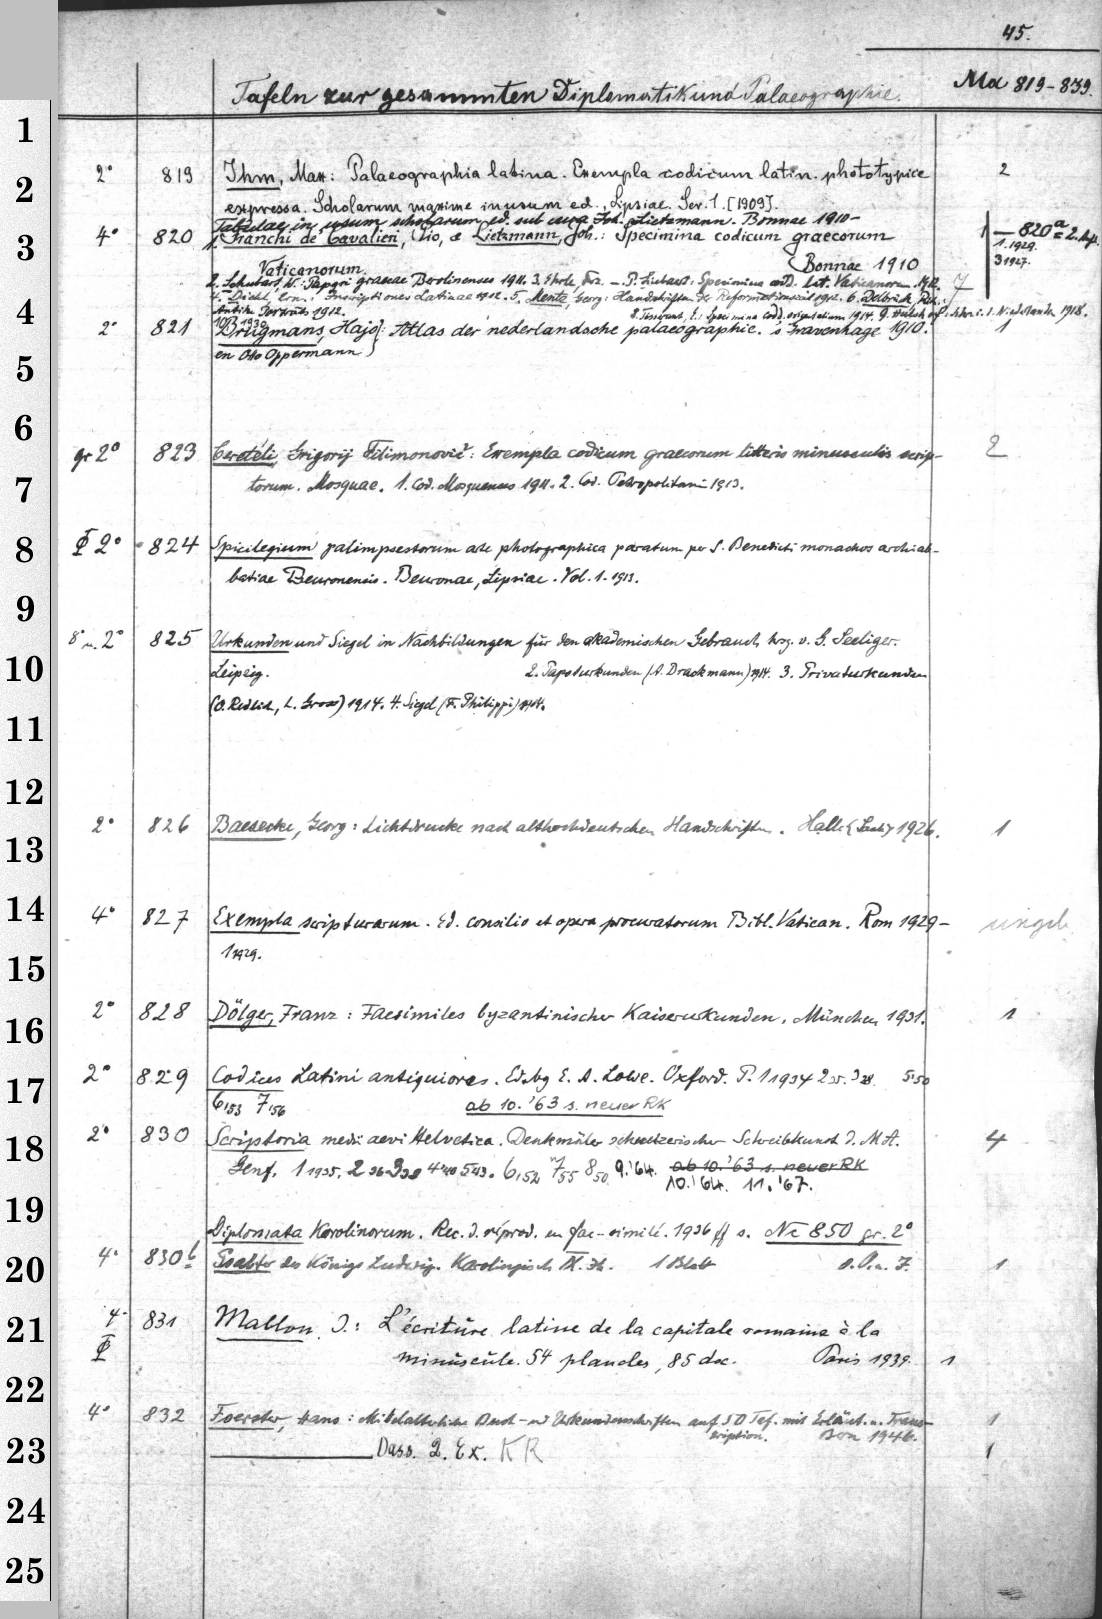 45.
Tafeln zur gesammten Diplomatik und Palaeographie. Md 819-839.
1
2
3
4
5
6
7
8
9
10
11
12
13
14
15
16
17
18
19
20
21
22
23
24
25
2° 819 Ihm, Max: Palaeographia latina. Exempla codicum latin. phototypice 2
expressa. Scholarum maxime in usum ed., Lipsiae. Ser. 1. [1909].
Tabulae in usum scholarum ed. sub cura Joh. Lietzmann. Bonnae 1910-
4° 820 1. Franchi de' Cavalieri, Pio, & Lietzmann, Joh.: Specimina codicum graecorum 1 — 820a = 2. Aufl.
1. 1929.
3 1927.
Vaticanorum. Bonnae 1910
2. Schubart, W.: Papyri graecae Berolinenses 1911. 3. Ehrle, Frz. - P. Liebaert: Specimina codd. lat. Vaticanorum 1912. 7
4. Diehl, Ern.: Inscriptiones Latinae 1912. 5. Mentz, Georg: Handschriften der Reformationszeit 1912. 6. Delbrück, Rich.:
Antike Porträts 1912. 8. Tisserant, E.: Specimina codd. orientalium 1914. 9. 1918.
10 1930
2° 821 Brugmans, Hajo: Atlas der nederlandsche palaeographie. 's Gravenhage 1910. 1
en Otto Oppermann
gr 2° 823 Ceretéli, Grigorij Filimonovič: Exempla codicum graecorum litteris minusculis scrip- 2
torum. Mosquae. 1. Cod. Mosquenses 1911. 2. Cod. Petropolitani 1913.
2° 824 Spicilegium palimpsestorum arte photographica paratum per S. Benedicti monachos archiab-
batiae Beuronensis. Beuronae, Lipsiae. Vol. 1. 1913.
8° u. 2° 825 Urkunden und Siegel in Nachbildungen für den akademischen Gebrauch hrg. v. G. Seeliger.
Leipzig. 2. Papsturkunden (A. Brackmann) 1914. 3. Privaturkunden
(O. Redlich, L. Gross) 1914. 4. Siegel (F. Philippi) 1914.
2° 826 Baesecke, Georg: Lichtdrucke nach althochdeutschen Handschriften. Halle (Saale) 1926. 1
4° 827 Exempla scripturarum. Ed. consilio et opera procuratorum Bibl. Vatican. Rom 1929- ungeb.
1 1929.
2° 828 Dölger, Franz: Facsimiles byzantinischer Kaiserurkunden. München 1931. 1
2° 829 Codices Latini antiquiores. Ed. by E. A. Lowe. Oxford. P. 1 1934 2 35. 3 38. 5.50
6,53 7,56 ab 10. '63 s. neuer RK
2° 830 Scriptoria medii aevi Helvetica. Denkmäler schweizerischer Schreibkunst d. MA. 4
Genf. 1 1935. 2 36. 3 38 4 '40 5 43. 6,52 7 55 8 50 9. '64. ab 10. '63 s. neuer RK
10. '64. 11. '67.
Diplomata Karolinorum. Rec. d. réprod. en fac-similé. 1936 ff s. Nc 850 gr. 2°
4° 830b Psalter des Königs Ludwig. Karolingisch IX. Jh. 1 Blatt s. O. u. J. 1
4° 831 Mallon, J.: L'écriture latine de la capitale romaine à la
minuscule. 54 planches, 85 doc. Paris 1939. 1
4° 832 Foerster, Hans: Mittelalterliche Buch- und Urkundenschriften auf 50 Taf. mit Erläut. u. Trans- 1
scription. Bern 1946.
Dass. 2. Ex. KR 1